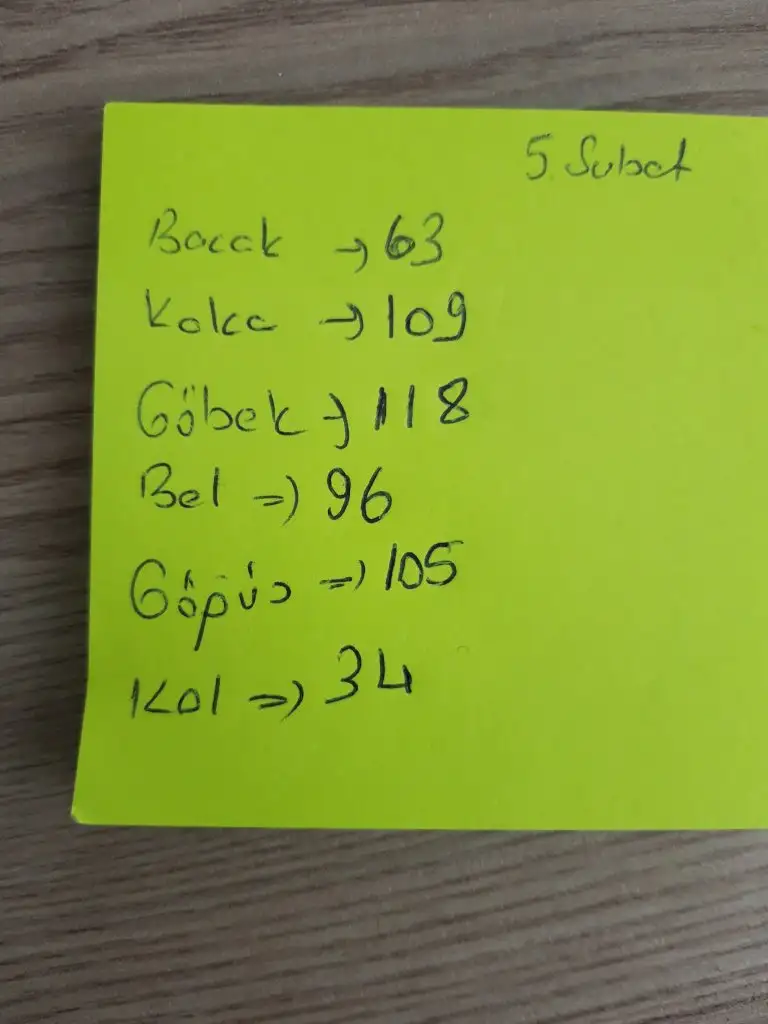 5 Şubat
Bacak → 63
Kalça → 109
Göbek → 118
Bel => 96
Göğüs => 105
Kol => 34